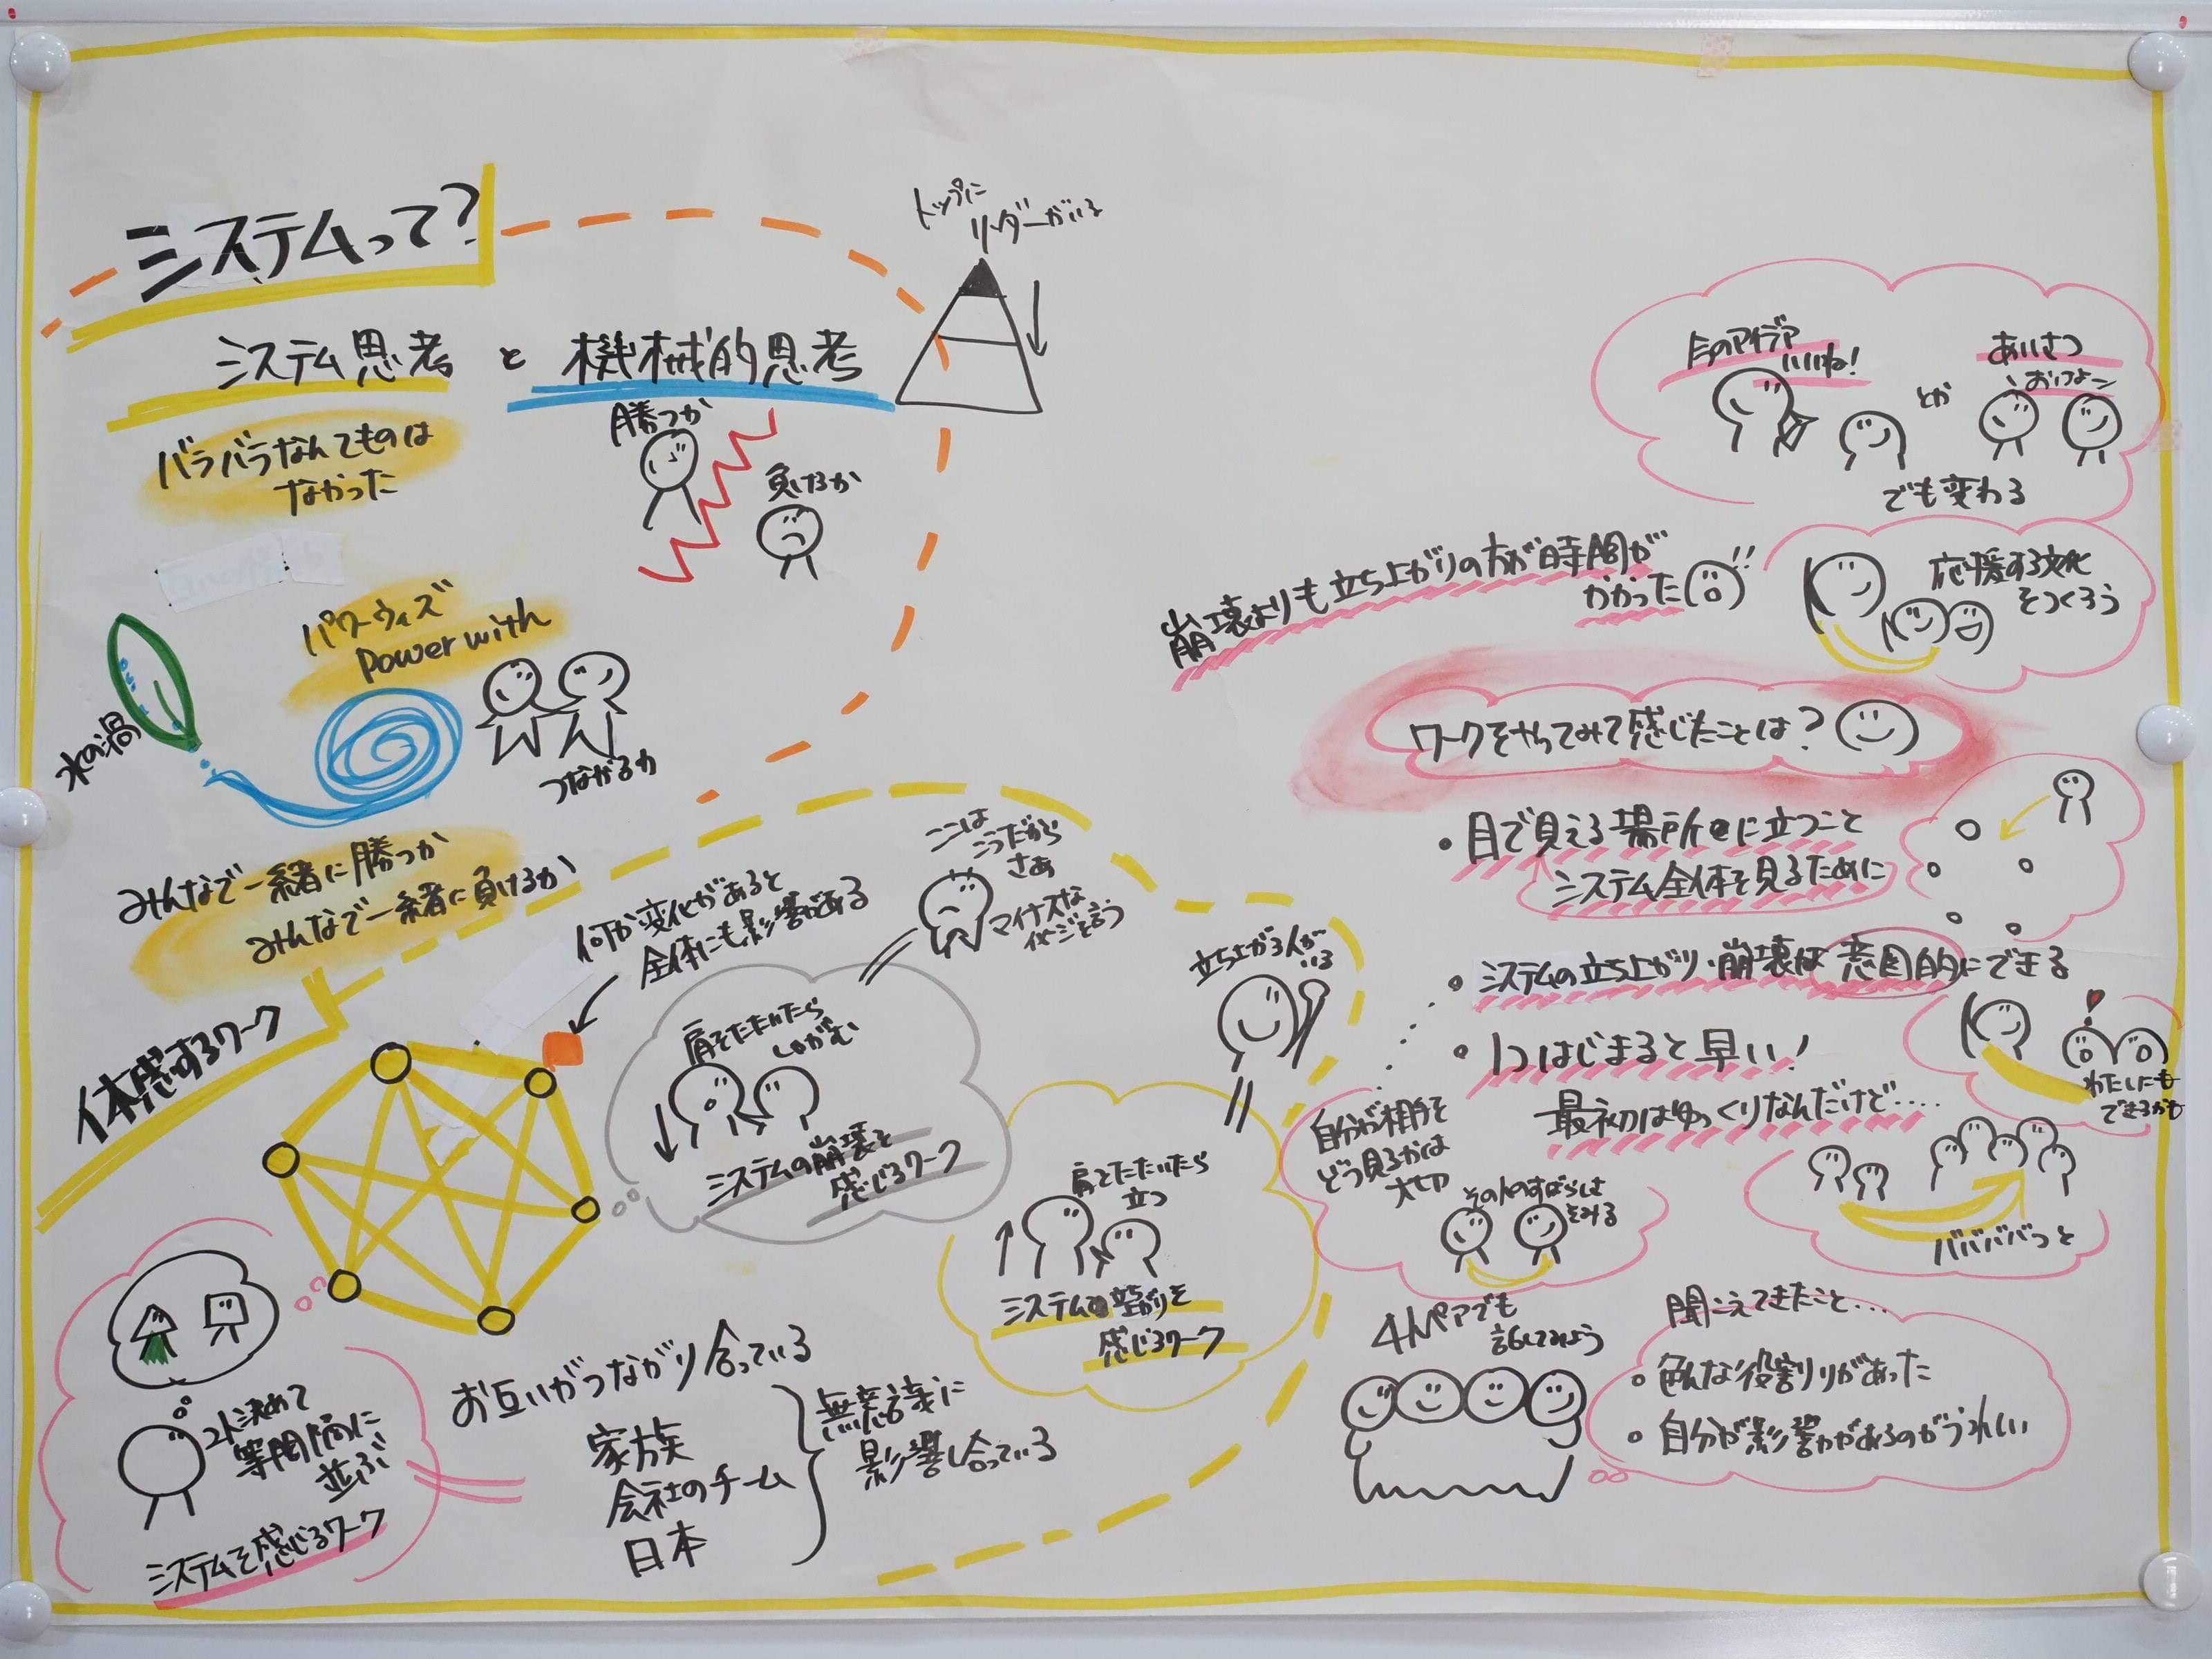 システムって?
システム思考 と 機械的思考
トップに
リーダーがいる
バラバラなんてものは
なかった
勝つか
負けるか
パワーウィズ
power with
水の渦
つながる力
みんなで一緒に勝つか
みんなで一緒に負けるか
体感するワーク
何か変化があると
全体にも影響がある
ここは
こうだから
さあ
マイナスな
イメージを言う
肩をたたいたら
しゃがむ
システムの崩壊を
感じるワーク
立ち上がる人が
いる
肩をたたいたら
立つ
システムの立ち上がりを
感じるワーク
2人決めて
等間隔に
並ぶ
システムを感じるワーク
お互いがつながり合っている
家族
会社のチーム
日本
無意識に
影響し合っている
アイデア
いいね!
とか
あいさつ
おはよー
でも変わる
崩壊よりも立ち上がりの方が時間が
かかった!!
応援する文化
をつくろう
ワークをやってみて感じたことは?
・目で見える場所に立つこと
システム全体を見るために
・システムの立ち上がり・崩壊は意図的にできる
・1つはじまると早い!
最初はゆっくりなんだけど.....
わたしにも
できるかも
バババババっと
自分が相手を
どう見るかは
大切
その人のすばらしさ
をみる
4人ペアでも
話してみよう
聞こえてきたこと...
色んな役割りがあった
自分が影響力があるのがうれしい